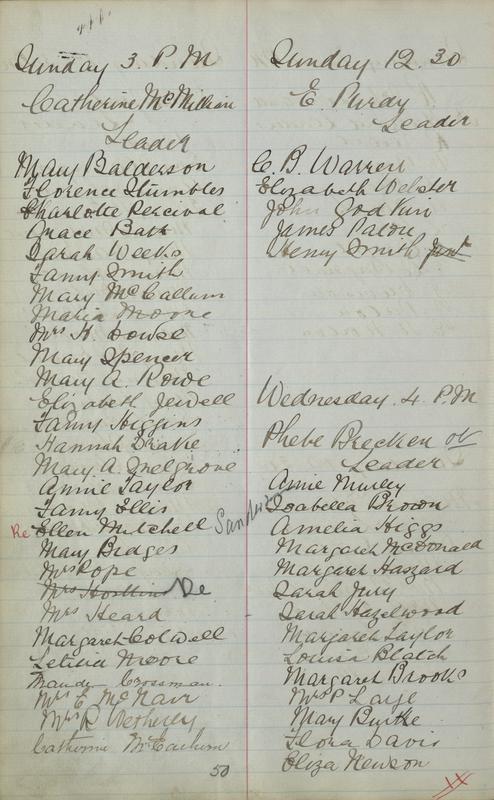 Sunday 3. P. M
Catherine McMillian
Leader
Mary Balderson
Florence Stumbles
Charlotte Percival
Grace Batt
Sarah Weeks
Fanny Smith
Mary McCallum
Maria Moore
Mrs H. Dowse
Mary Spencer
Mary A. Rowe
Elizabeth Jewell
Fanny Higgins
Hannah Drake
Mary A. Snelgrove
Annie Taylor
Fanny Ellis
Re Ellen Mitchell Sanders
Mary Bidges
Mrs Pope
Mrs Hoskins Re
Mrs Heard
Margaret Colwell
Letitia Moore
Maude Crossman
Mrs E McNair
Mrs R Wetherley
Catherine McEachern
50
Sunday 12.30
E Purdy
Leader
C. B. Warren
Elizabeth Webster
John Godkin
James Paton
Henry Smith
Wednesday 4 P.M
Phebe Brecken
Leader
Annie Murley
Isabella Brown
Amelia Higgs
Margaret McDonald
Margaret Haszard
Sarah Jury
Sarah Hazelwood
Margaret Taylor
Louisa Blatch
Margaret Brooks
Mrs P Large
Mary Burke
Flora Davis
Eliza Newson